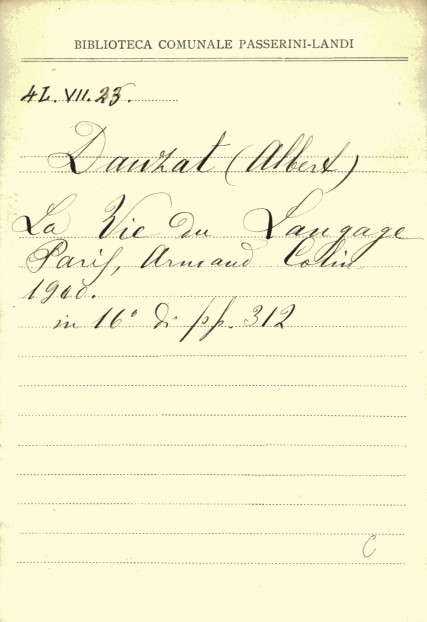 BIBLIOTECA COMUNALE PASSERINI-LANDI
4L. VII. 25.
Dauzat (Albert)
La Vie du Langage
Paris, Armand Colin
1910.
in 16° di pp. 312
C